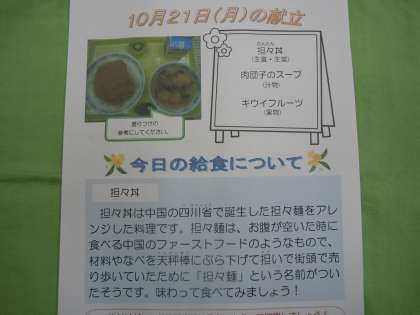 10月21日(月)の献立
たんたん
担々丼
(主食・主菜)
肉団子のスープ
(汁物)
キウイフルーツ
(果物)
盛りつけの
参考にしてください。
今日の給食について
担々丼
担々丼は中国の四川省で誕生した担々麺をアレ
ンジした料理です。担々麺は、お腹が空いた時に
食べる中国のファーストフードのようなもので、
材料やなべを天秤棒にぶら下げて担いで街頭で売
り歩いていたために「担々麺」という名前がつい
たそうです。味わって食べてみましょう!